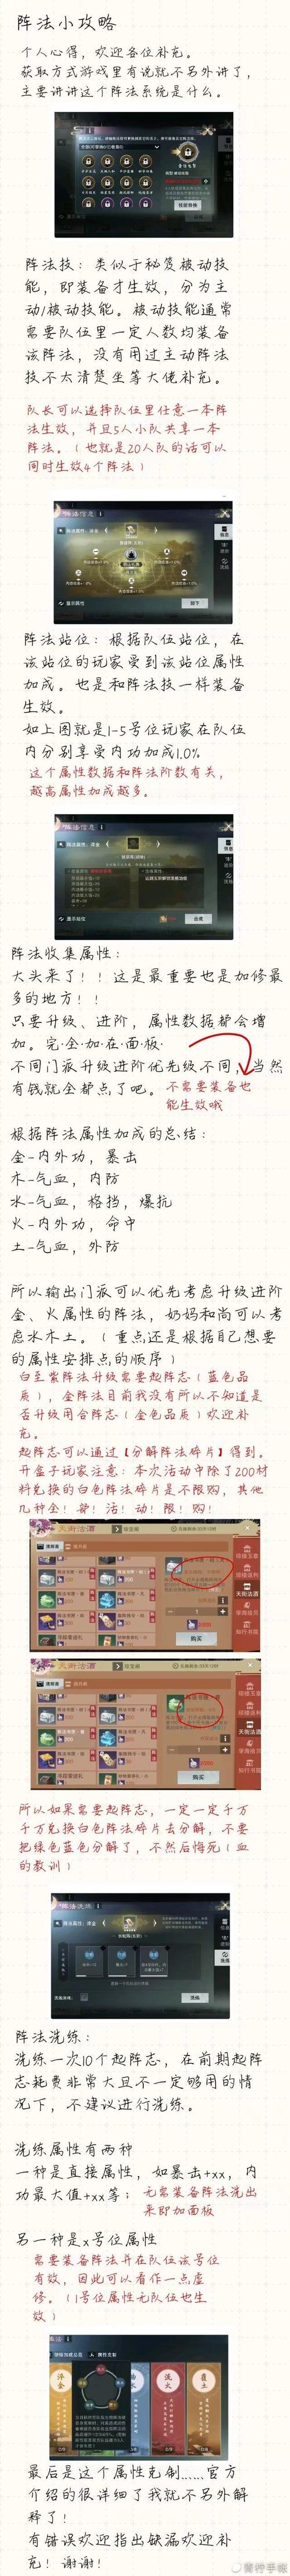 阵法小攻略
个人心得，欢迎各位补充。
获取方式游戏里有说就不另外讲了，
主要讲讲这个阵法系统是什么。
阵法技：类似于秘笈被动技
能，即装备才生效，分为主
动/被动技能。被动技能通常
需要队伍里一定人数均装备
该阵法，没有用过主动阵法
技不太清楚坐等大佬补充。
队长可以选择队伍里任意一本阵
法生效，并且5人小队共享一本
阵法。（也就是20人队的话可以
同时生效4个阵法）
阵法信息
显示属性
卸下
阵法站位：根据队伍站位，在
该站位的玩家受到该站位属性
加成。也是和阵法技一样装备
生效。
如上图就是1-5号位玩家在队伍
内分别享受内功加成1.0%
这个属性数据和阵法阶数有关，
越高属性加成越多。
阵法信息
显示站位
合成
阵法收集属性：
大头来了！！这是最重要也是加修最
多的地方！！
只要升级、进阶，属性数据都会增
加。完·全·加·在·面板·
不同门派升级进阶优先级不同，当然
有钱就全都点了吧。
不需要装备也
能生效哦
根据阵法属性加成的总结：
金-内外功，暴击
木-气血，内防
水-气血，格挡，爆抗
火-内外功，命中
土-气血，外防
所以输出门派可以优先考虑升级进阶
金、火属性的阵法，奶妈和尚可以考
虑水木土。（重点还是根据自己想要
的属性安排点的顺序）
白至紫阵法升级需要起阵志（蓝色品
质），金阵法目前我没有所以不知道是
否升级用合阵志（金色品质）欢迎补
充。
起阵志可以通过【分解阵法碎片】得到。
开盒子玩家注意：本次活动中除了200材
料兑换的白色阵法碎片是不限购，其他
几种全！部！活！动！限！购！
天街沽酒
购买
天街沽酒
天街沽酒
购买
天街沽酒
所以如果需要起阵志，一定一定千万
千万兑换白色阵法碎片去分解，不要
把绿色蓝色分解了，不然后悔死（血
的教训）
阵法洗练
洗练
阵法洗练：
洗练一次10个起阵志，在前期起阵
志耗费非常大且不一定够用的情
况下，不建议进行洗练。
洗练属性有两种
一种是直接属性，如暴击+xx，内
功最大值+xx等；
无需装备阵法洗出
来即加面板
另一种是x号位属性
需要装备阵法并在队伍该号位
有效，因此可以看作一点虚
修。（1号位属性无队伍也生
效）
淬金
洗火
覆土
最后是这个属性克制......官方
介绍的很详细了我就不另外解
释了！
有错误欢迎指出缺漏欢迎补
充！谢谢！
青柠手帐